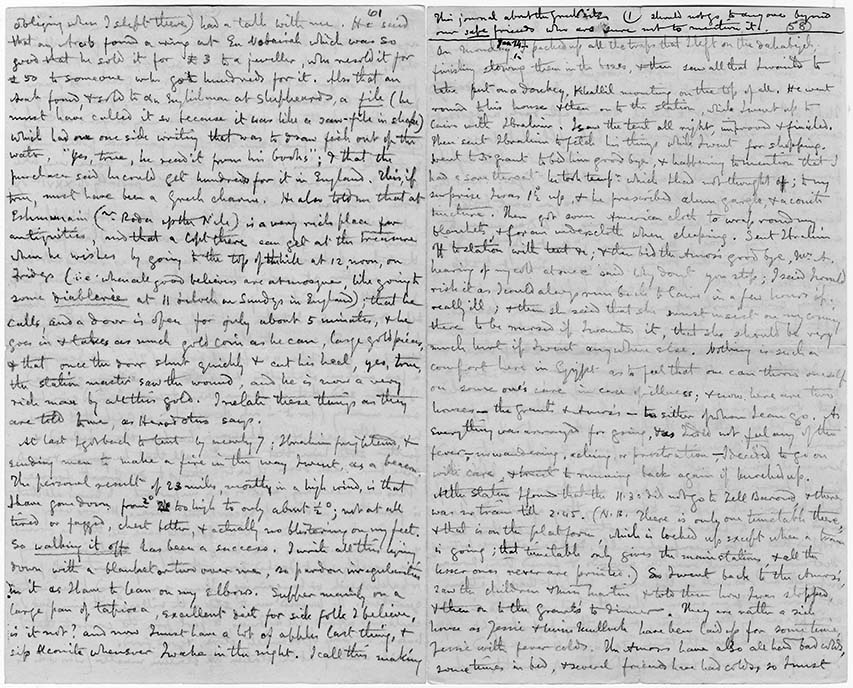 61
obliging when I slept there) had a talk with me. He said
that an Arab found a ring at En Nobairah which was so
good that he sold it for £3 to a jeweller, who resold it for
£50 to someone who got hundreds for it. Also that an
Arab found & sold to an Englishman at Shepheards, a file (he
must have called it so because it was like a saw-file in shape)
which had on one side writing that was to draw fish out of the
water. "Yes, true, he read it from his books"; & that the
purchaser said he could get hundreds for it in England. This, if
true, must have been a Greek charm. He also told me that at
Eshmunain (nr Roda up the Nile) is a very rich place for
antiquities, and that a Copt there can get at the treasure
when he wishes by going to the top of the hill at 12 noon, on
Fridays (i.e. when all good believers are at mosque, like going to
some diablerie at 11 o'clock on Sundays in England); that he
calls, and a door is open for only about 5 minutes, & he
goes in & takes as much gold coin as he can, large gold pieces,
& that once the door shut quickly & cut his heel, yes, true,
the station master saw the wound, and he is now a very
rich man by all this gold. I relate these things as they
are told to me, as Herodotus says.
At last I got back to tent by nearly 7; Ibrahim frightened, &
sending men to make a fire in the way I went, as a beacon.
The personal result of 23 miles, mostly in a high wind, is that
I have gone down from 3° too high to only about ½°; not at all
tired or fagged, chest better, & actually no blistering on my feet.
So walking it off has been a success. I write all this lying
down with a blanket or two over me, so pardon irregularities
in it as I have to lean on my elbows. Supper mainly on a
large pan of tapioca, excellent diet for sick folk I believe,
is it not? and now I must have a lot of apples last thing, &
sip Aconite whenever I wake in the night. I call this making
This journal about the Greek sites (1) should not go to anyone beyond
our safe friends who are sure not to mention it. (58)
On Monday packed up all the traps that I left on the dahabiyeh,
finishing stowing them in the boxes, & then saw all that I wanted to
take put on a donkey, Khallil mounting on the top of all. He went
round to his house & then on to the station, while I went up to
Cairo with Ibrahim. I saw the tent all right improved & finished.
Then sent Ibrahim to fetch his things while I went for shopping.
Went to Dr Grant to bid him good bye, & happening to mention that I
had a sore throat he took temp. which I had not thought of; to my
surprise I was 1½ up, & he prescribed alum gargle, & aconite
tincture. Then got some American cloth to wrap round my
blankets, & for an undercloth when sleeping. Sent Ibrahim
off to station with tent &c; & then bid the Amos's good bye. Mrs A.
hearing of my cold at once said why don't you stop; I said I would
risk it as I could always run back to Cairo in a few hours if
really ill; & then she said that she must insist on my coming
there to be nursed if I wanted it, that she should be very
much hurt if I went anywhere else. Nothing is such a
comfort here in Egypt as to feel that one can throw oneself
on some one's care in case of illness; & now here are two
houses – the Grants & Amos's – to either of whom I can go. As
everything was arranged for going, & as I did not feel any of the
fever – no wandering, aching, or prostration – I decided to go on
with care, & trust to running back again if knocked up.
At the station I found that the 11.30 did not go to Tell Barud & there
was no train till 2.45. (N.B. There is only one timetable there,
& that is on the platform, which is locked up except when a train
is going; that timetable only gives the main stations & all the
lesser ones never are printed.) So I went back to the Amos's,
saw the children & & told them how I was stopped,
& then on to the Grants to dinner. They are rather a sick
house as Jessie & have been laid up for some time,
Jessie with fever colds. The Amos's have also all had bad colds,
sometimes in bed, & several friends have had colds, so I must